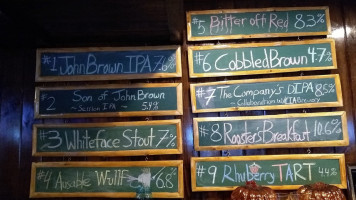 #1 John Brown IPA 7.6%
2 Son of John Brown
~ Session IPA ~ 5.4%
#3 Whiteface Stout 7%
#4 Ausable Wulff 6.8
#5 Bitter off Red 8.3%
#6 Cobbled Brown 4.7%
#7 The Company's DIPA 8.5%
~ Collaboration w/
#8 Rooster's Breakfast 10.6%
#9 Rhuberry TART 4.4%